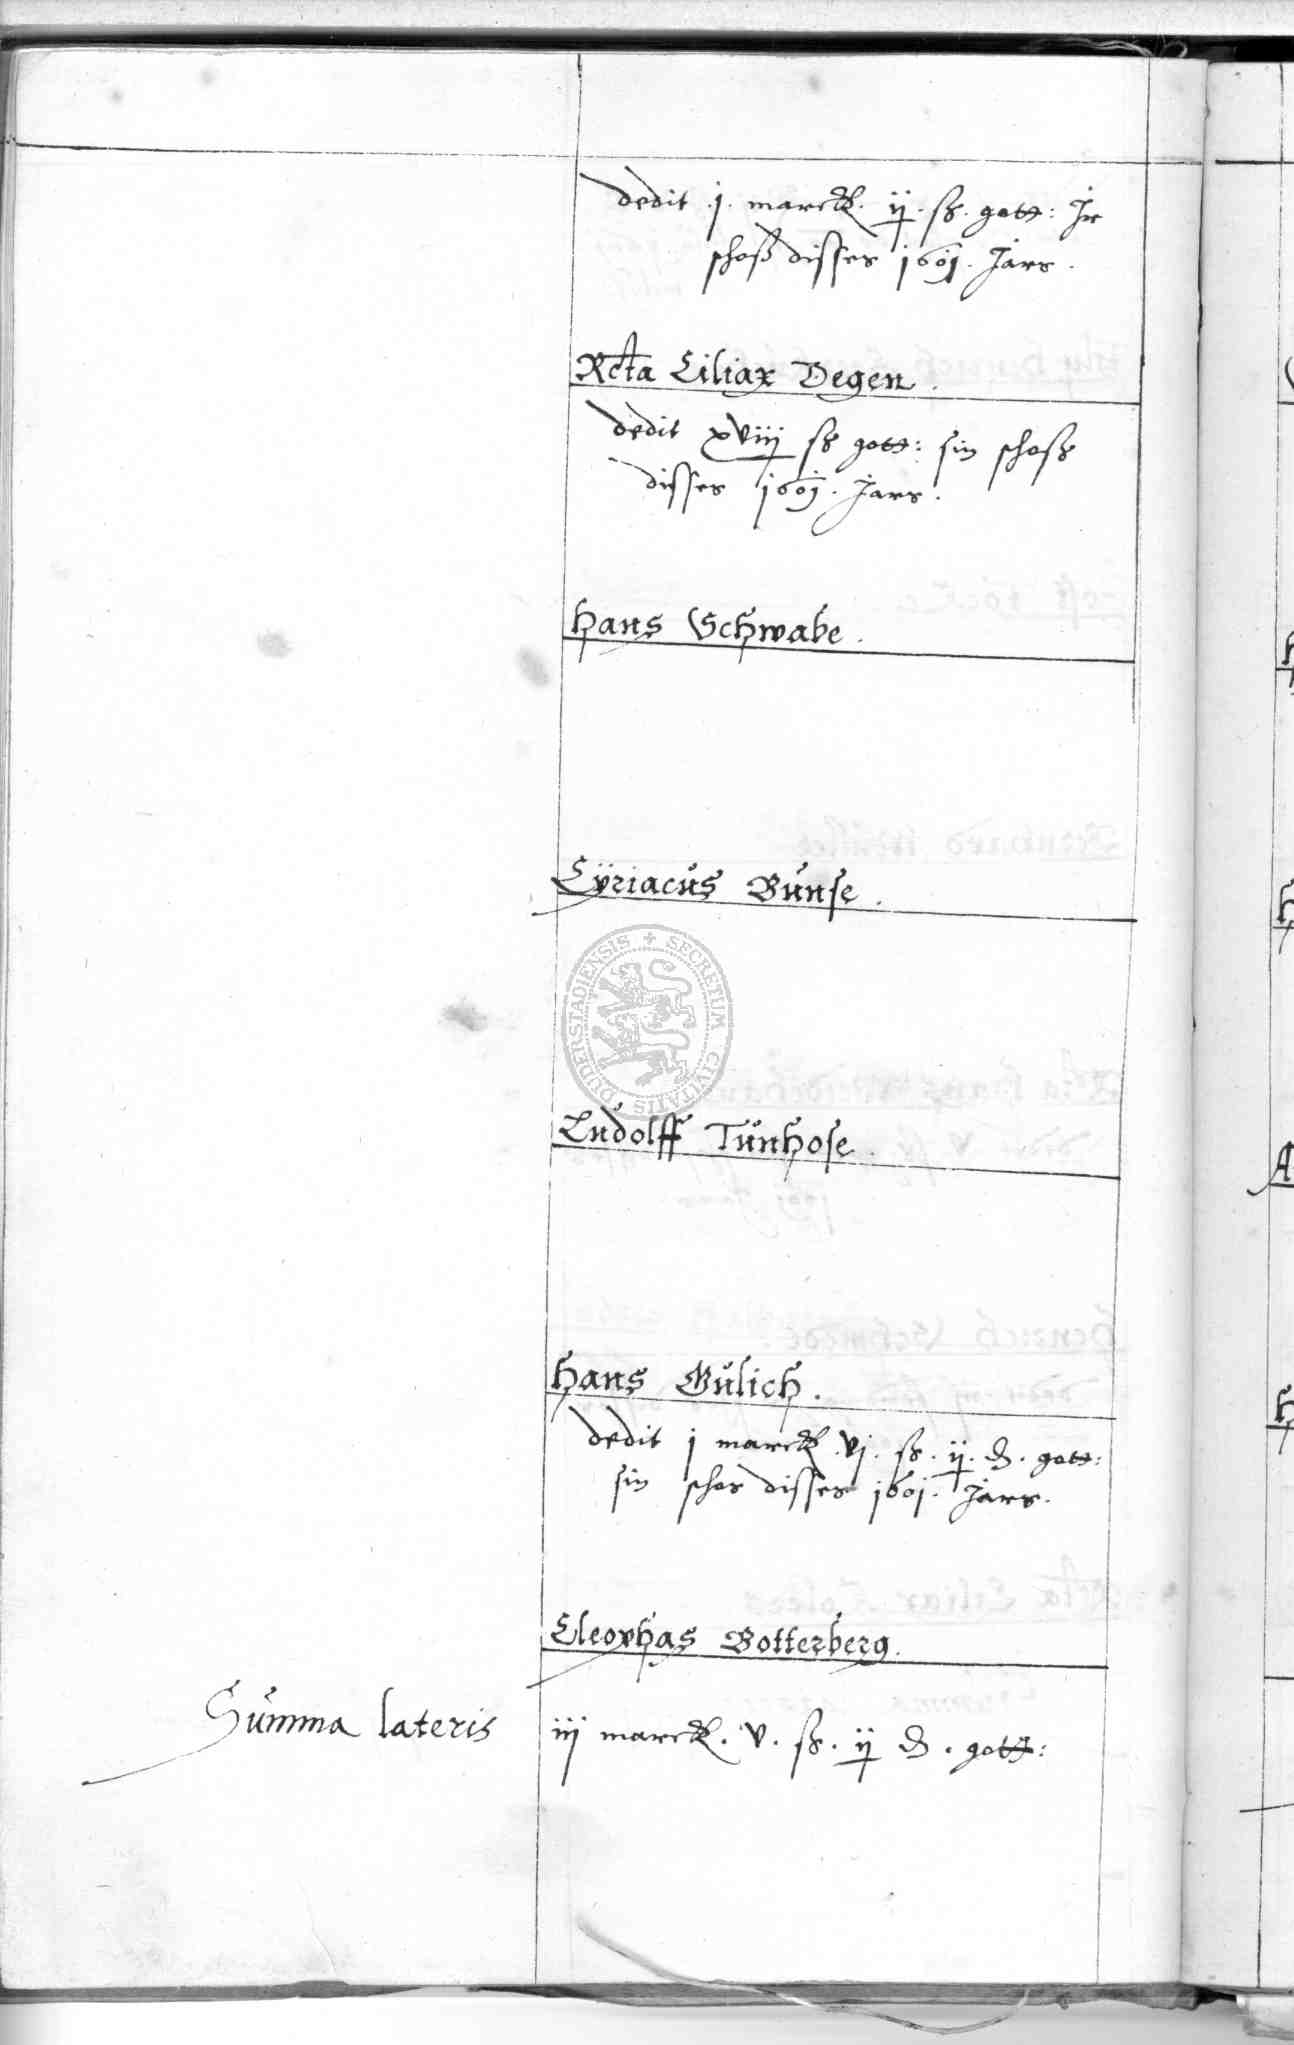 dedit .j. marck. ij. ß. gott: Jr
schoß disses 1601. Jars.
Rcta Ciliax Degen.
dedit xviij ß gott: sin schoß
disses 1601. Jars.
Hans Schwabe.
Cÿriacus Bunse.
SECRETUM CIVITATIS DUDERSTADIENSIS
Ludolff Tunhose.
Hans Gulich.
dedit j marck vj. ß. ij. d. gott:
sin schos disses 1601. Jars.
Cleophas Botterberg.
Summa lateris iij marck. v. ß. ij d. gott: